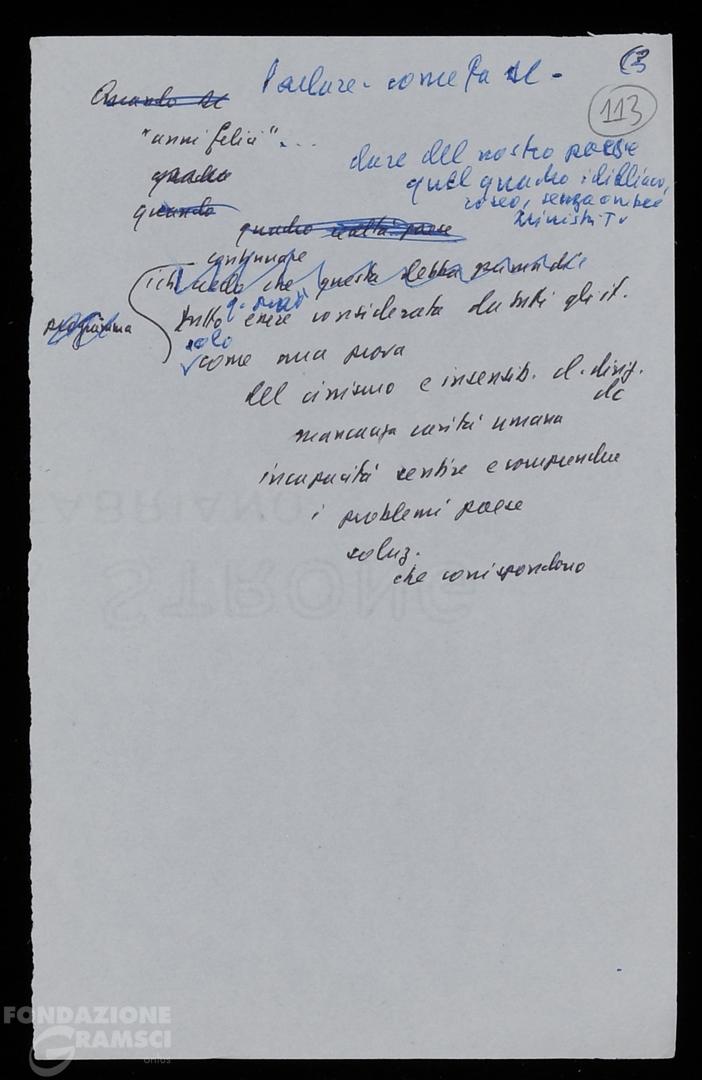 Parlare - come fa DC -
113
Quando DC
"anni felici"...
dare del nostro paese
quel quadro idilliaco,
roseo, senza ombre
ministri Tv
quadro
quando
quadro realtà paese
continuare
io credo che questa debba prima di
tutto essere considerata da tutti gli it.
solo
programma
come una prova
del cinismo e insensib. d. dirig.
dc
mancanza carità umana
incapacità sentire e comprendere
i problemi paese
soluz.
che corrispondono
FABRIANO
STRONG
FONDAZIONE
GRAMSCI
onlus